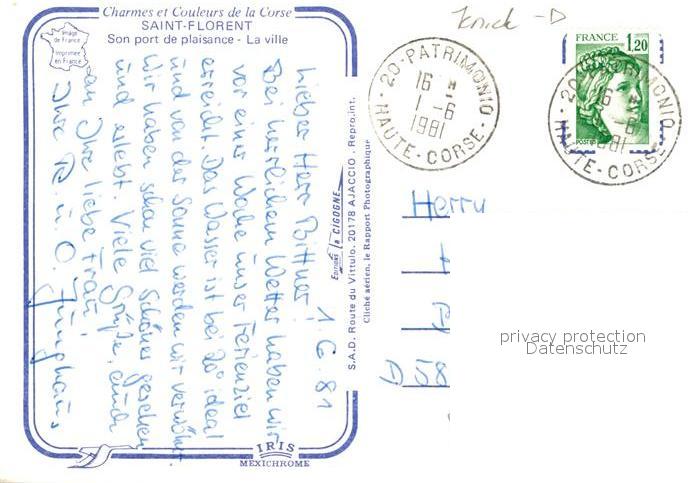 Charmes et Couleurs de la Corse
SAINT-FLORENT
Son port de plaisance - La ville
Image
de France
Imprimée
en France
1.6.81
Lieber Herr Bittner!
Bei herrlichem Wetter haben wir
vor einer Woche unser Ferienziel
erreicht. Das Wasser ist bei 20° ideal
und von der Sonne werden wir verwöhnt.
Wir haben schon viel Schönes gesehen
und erlebt. Viele Grüße, auch
an Ihre liebe Frau!
Ihre R. u. O. Junghans
IRIS
MEXICHROME
Editions la CIGOGNE
S.A.D. Route du Vittulo. 20178 AJACCIO - Repro.int.
Cliché aérien, le Rapport Photographique
Knick -D
20-PATRIMONIO
16 H
1-6
1981
HAUTE-CORSE
FRANCE 1,20
POSTES
20-PATRIMONIO
16
1-6
1981
HAUTE-CORSE
Herrn
D 58
privacy protection
Datenschutz